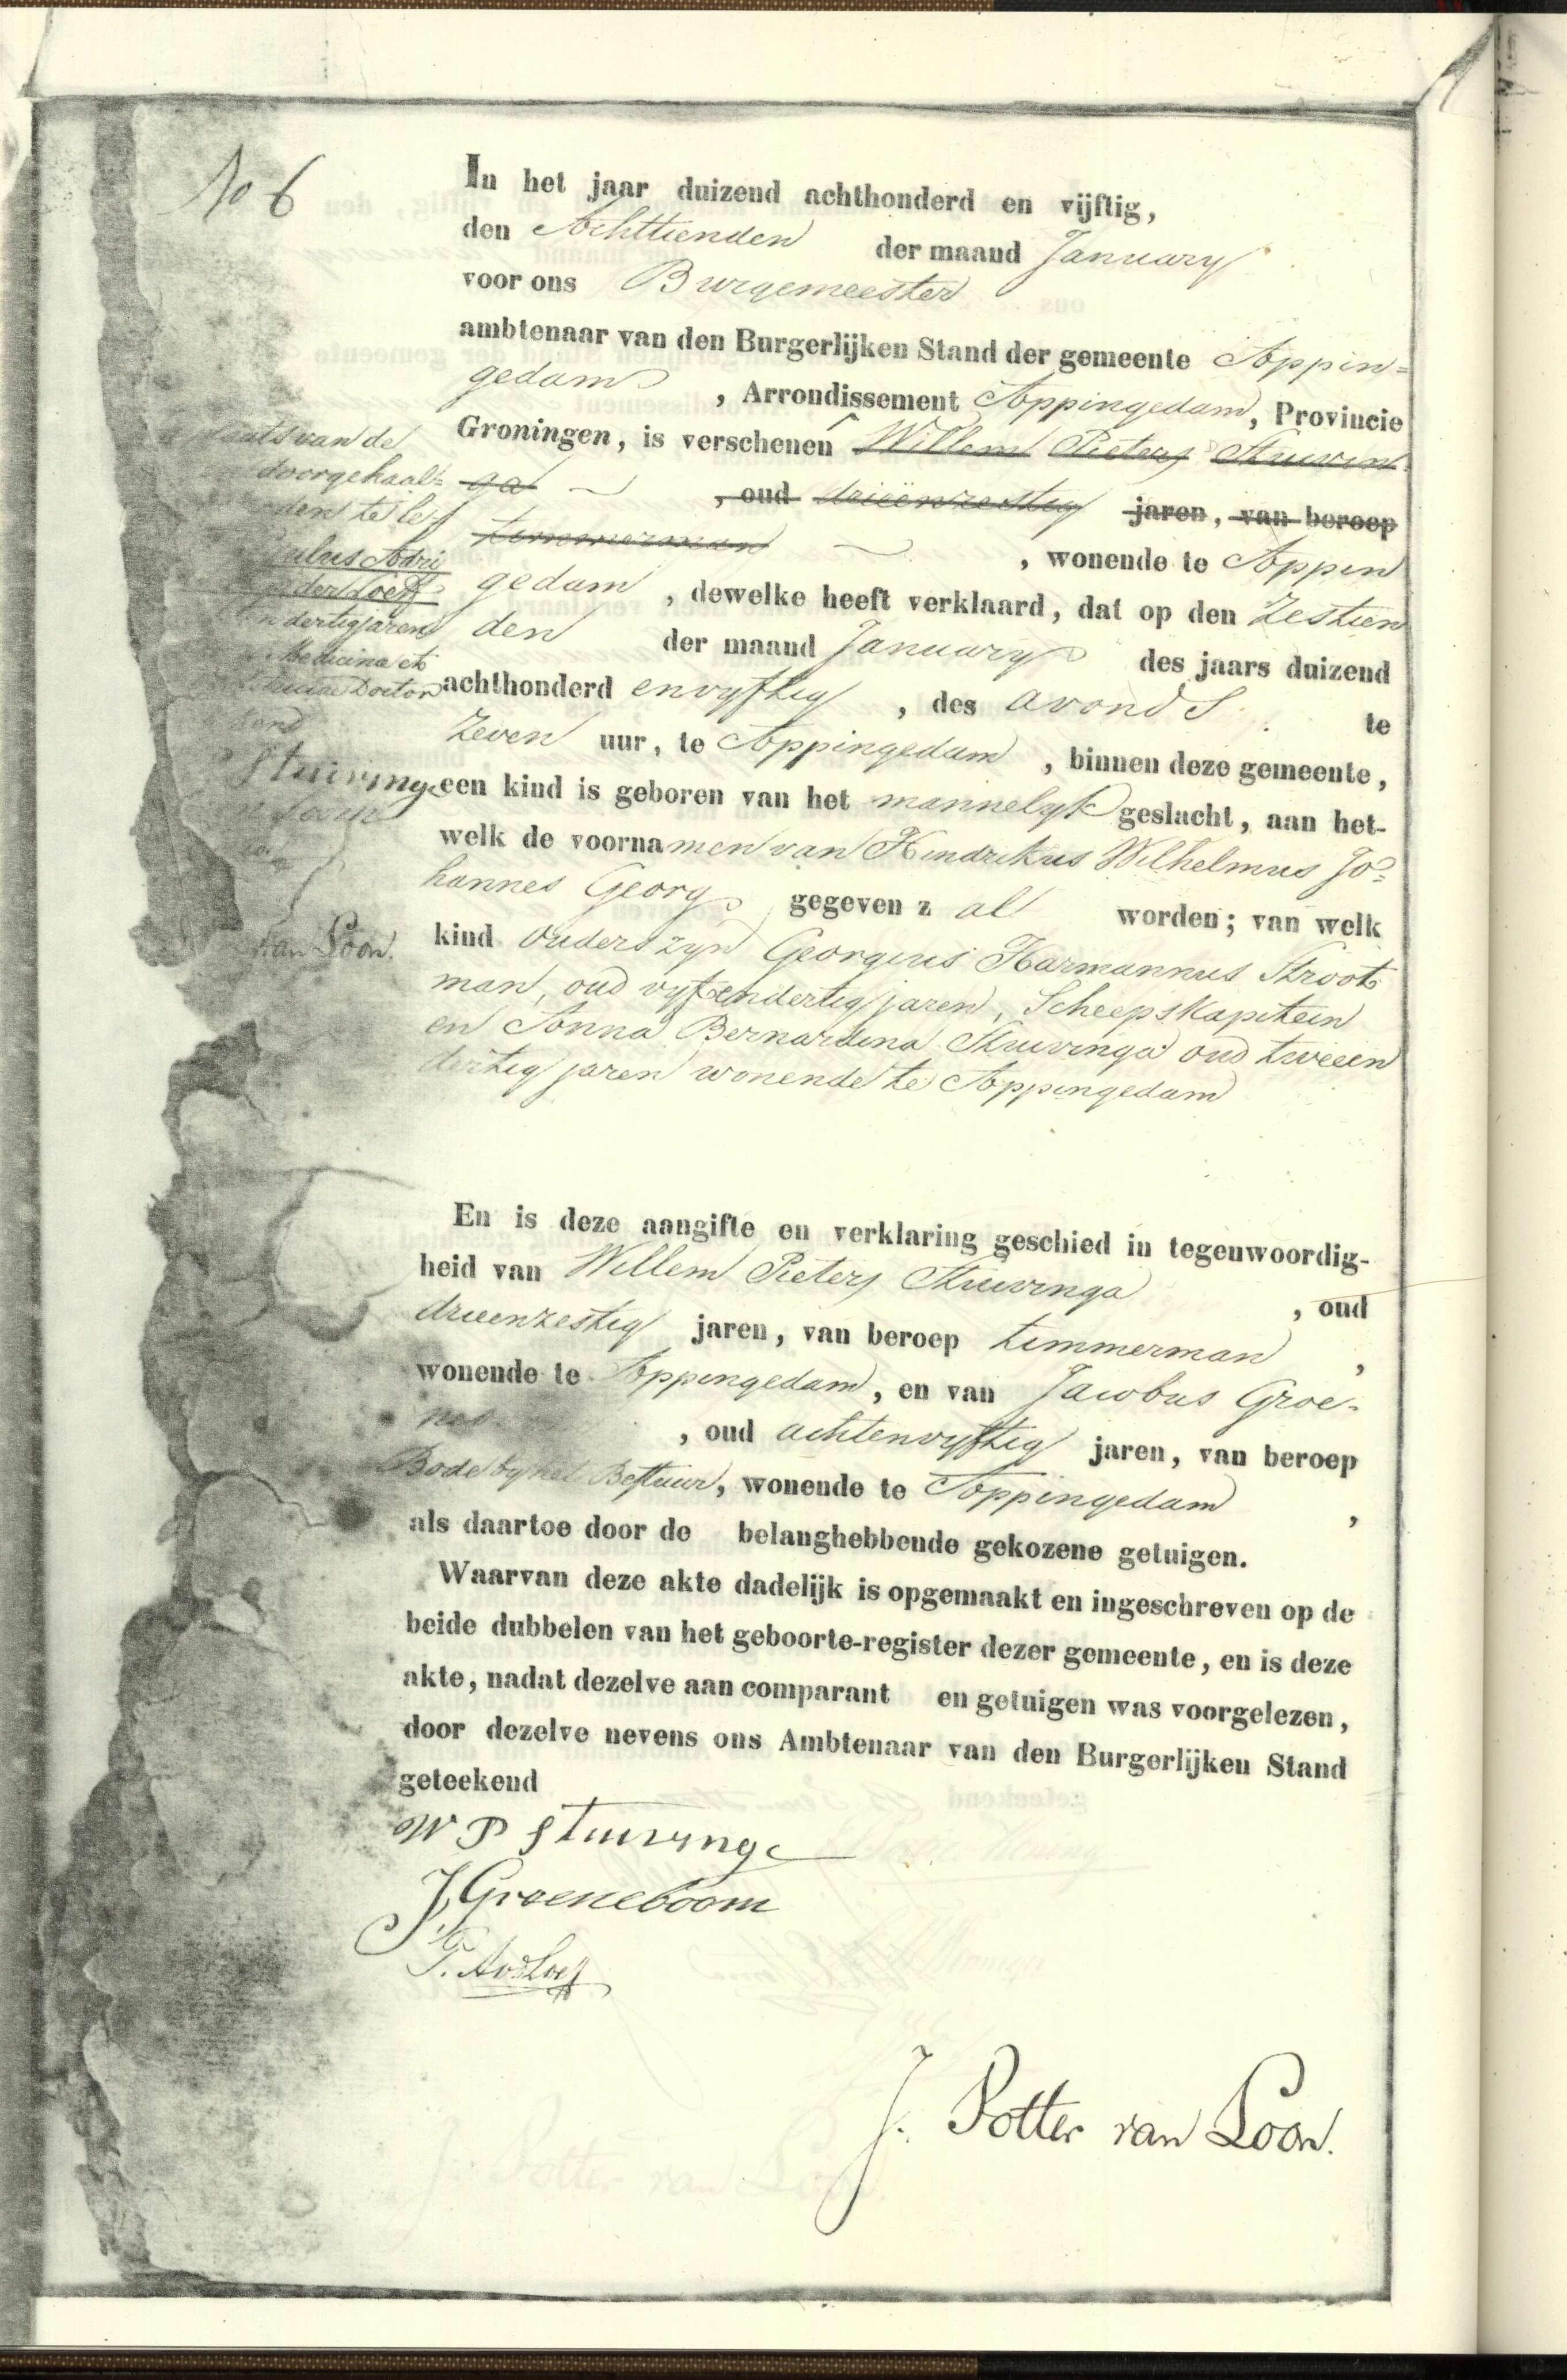 No 6
In het jaar duizend achthonderd en vijftig,
den Achttienden der maand January
voor ons Burgemeester
ambtenaar van den Burgerlijken Stand der gemeente Appin=
gedam, Arrondissement Appingedam, Provincie
Groningen, is verschenen Willem Pieters Stuivin=
ga, oud drieënzestig jaren, van beroep
timmerman, wonende te Appin
gedam, dewelke heeft verklaard, dat op den Zestien
den der maand January des jaars duizend
achthonderd en vyftig, des avonds te
Zeven uur, te Appingedam, binnen deze gemeente,
een kind is geboren van het mannelyk geslacht, aan het-
welk de voornamen van Hindrikus Wilhelmus Jo=
hannes Georg gegeven zal worden; van welk
kind ouders zyn Georgius Harmannus Stroot
man, oud vyfendertig jaren, Scheepskapitein
en Anna Bernardina Stuivinga oud tweeen
dertig jaren wonende te Appingedam
van de
doorgehaal=
den te
der Loeff
dertig jaren
Medicina et
Doctor
Stuivinga
van Loon.
En is deze aangifte en verklaring geschied in tegenwoordig-
heid van Willem Pieters Stuivinga, oud
drieenzestig jaren, van beroep timmerman,
wonende te Appingedam, en van Jacobus Groe-
, oud achtenvyftig jaren, van beroep
Bode by het Bestuur, wonende te Appingedam,
als daartoe door de belanghebbende gekozene getuigen.
Waarvan deze akte dadelijk is opgemaakt en ingeschreven op de
beide dubbelen van het geboorte-register dezer gemeente, en is deze
akte, nadat dezelve aan comparant en getuigen was voorgelezen,
door dezelve nevens ons Ambtenaar van den Burgerlijken Stand
geteekend
W P Stuivinga
J Groeneboom
J. Potter van Loon.